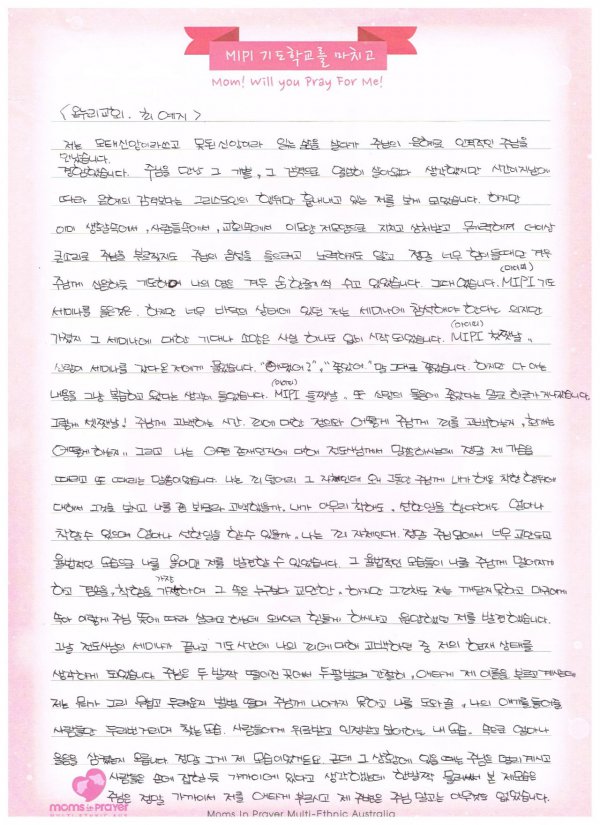 MIPI 기도학교를 마치고
Mom! Will you Pray For Me!
<온누리교회. 최예지>
저는 모태신앙이라쓰고 못된신앙이라 읽는 삶을 살다가 주님의 은혜로 인격적인 주님을
만났습니다.
경험했습니다. 주님을 만난 그 기쁨, 그 감격으로 열심히 살아왔다 생각했지만 시간이지남에
따라 은혜의 감격보다는 그리스도인의 행위만 흉내내고 있는 저를 보게 되었습니다. 하지만
이미 생활속에서, 사람들속에서, 교회속에서 이모양 저모양으로 지치고 상처받고 무기력해져 더이상
큰소리로 주님을 부르짖지도 주님의 음성을 들으려고 노력하지도 않고 정말 너무 힘이들때만 겨우
주님께 신음하듯 기도하며 나의 영은 겨우 숨 한줄기씩 쉬고 있었습니다. 그때였습니다. MIPI 기도
(마이피)
세미나를 들은것은. 하지만 너무 바닥의 상태에 있던 저는 세미나에 참석해야 한다는 의지만
가졌지 그 세미나에 대한 기대나 소망은 사실 하나도 없이 시작 되었습니다. MIPI 첫째날,
(마이피)
신랑이 세미나를 갔다온 저에게 물었습니다. "어땠어?", "좋았어" 말 그대로 좋았습니다. 하지만 다 아는
내용을 그냥 복습하고 왔다는 생각이 들었습니다. MIPI 둘째날, 또 신랑의 물음에 좋았다는 말로 하루가 지나갔습니다.
(마이피)
그렇게 셋째날! 주님께 고백하는 시간. 죄에 대한 정의와 어떻게 주님께 죄를 고백하는지, 회개는
어떻게 하는지, 그리고 나는 어떤 존재인지에 대해 전도사님께서 말씀하시는데 정말 제 가슴을
때리고 또 때리는 말씀이었습니다. 나는 죄 덩어리 그 자체인데 왜 그동안 주님께 내가 해온 착한 행위에
대해서 그것을 받고 나를 좀 봐달라 고백했을까, 내가 아무리 착해도, 선한일을 한다해도 얼마나
착할수 있으며 얼마나 선한일을 할수 있을까, 나는 죄 자체인데. 정말 주님앞에서 너무 교만하고
율법적인 모습으로 나를 옭아맨 저를 발견할 수 있었습니다. 그 율법적인 모습들이 나를 주님께 멀어지게
하고 겸손을, 착함을 가장하여 그 속은 누구보다 교만한, 하지만 그것조차도 저는 깨닫지못하고 마귀에게
가장
속아 이렇게 주님 뜻에 따라 살려고 하는데 왜이리 힘들게 하시냐고 원망했던 저를 발견했습니다.
그날 전도사님의 세미나가 끝나고 기도시간에 나의 죄에대해 고백하던 중 저의 현재 상태를
생각하게 되었습니다. 주님은 두 발짝 떨어진 곳에서 두팔벌려 간절히, 애타게 제 이름을 부르고 계시는데
저는 뭐가 그리 무섭고 두려운지 벌벌 떨며 주님께 나아가지 못하고 나를 도와줄, 나의 얘기를 들어줄
사람들만 두리번거리며 찾는 모습. 사람들에게 위로받고 인정받고 싶어하는 내 모습. 속으로 얼마나
울음을 삼켰는지 모릅니다. 정말 그게 제 모습이었거든요. 근데 그 상황에 있을 때는 주님은 멀리 계시고
사람들은 손에 잡힐듯 가까이에 있다고 생각했는데 한발짝 물러서서 본 제모습은
주님은 정말 가까이서 저를 애타게 부르시고 제 주변은 주님 말고는 아무것도 없었습니다.
moms in prayer
MULTI-ETHNIC AUS
Moms In Prayer Multi-Ethnic Australia